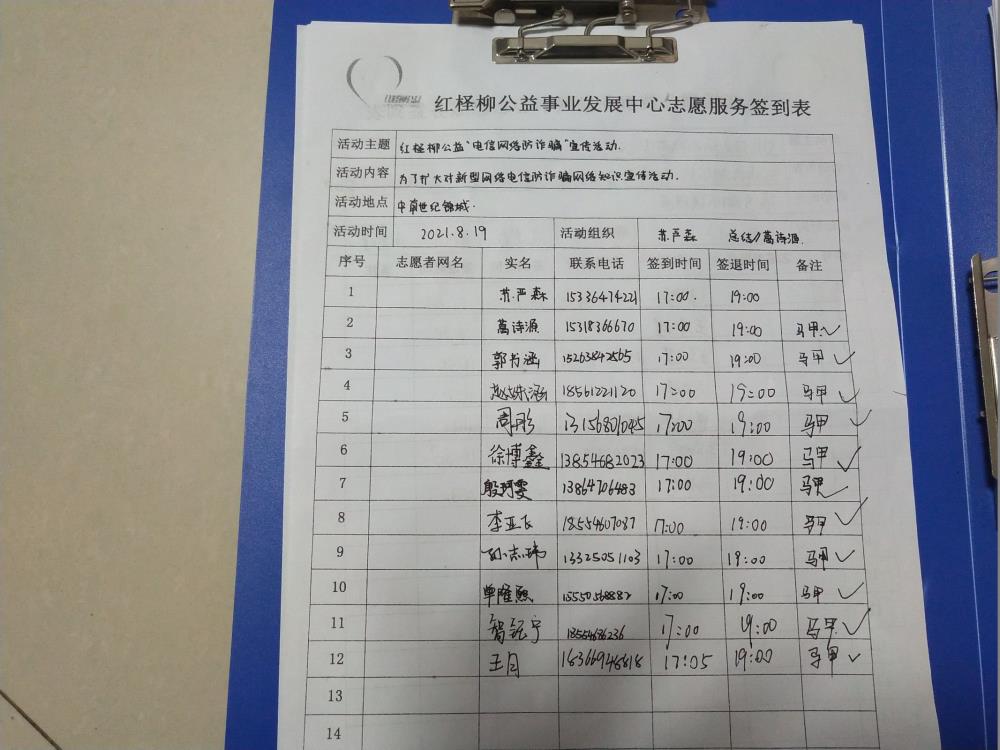 红柽柳公益事业发展中心志愿服务签到表
活动主题 红柽柳公益“电信网络防诈骗”宣传活动.
活动内容 为了扩大对新型网络电信防诈骗网络知识宣传活动.
活动地点 中南世纪锦城.
活动时间 2021.8.19 活动组织 苏严森 总结/葛诗源.
序号 志愿者网名 实名 联系电话 签到时间 签退时间 备注
1 苏严森 15336474221 17:00. 19:00
2 葛诗源 15318366670 17:00 19:00 马甲✓
3 郭书涵 15263842565 17:00 19:00 马甲 ✓
4 18561221120 17:00 19:00 马甲 ✓
5 周彤 13156801045 17:00 19:00 马甲 ✓
6 徐博鑫 13854682023 17:00 19:00 马甲 ✓
7 殷珂雯 13864706483 17:00 19:00 马甲✓
8 李亚飞 18554607087 17:00 19:00 马甲 ✓
9 孙志玮 13325051103 17:00 19:00 马甲 ✓
10 单隆熙 15550568882 17:00 19:00 马甲 ✓
11 17:00 19:00 马甲 ✓
12 王月 18366946818 17:05 19:00 马甲 ✓
13
14